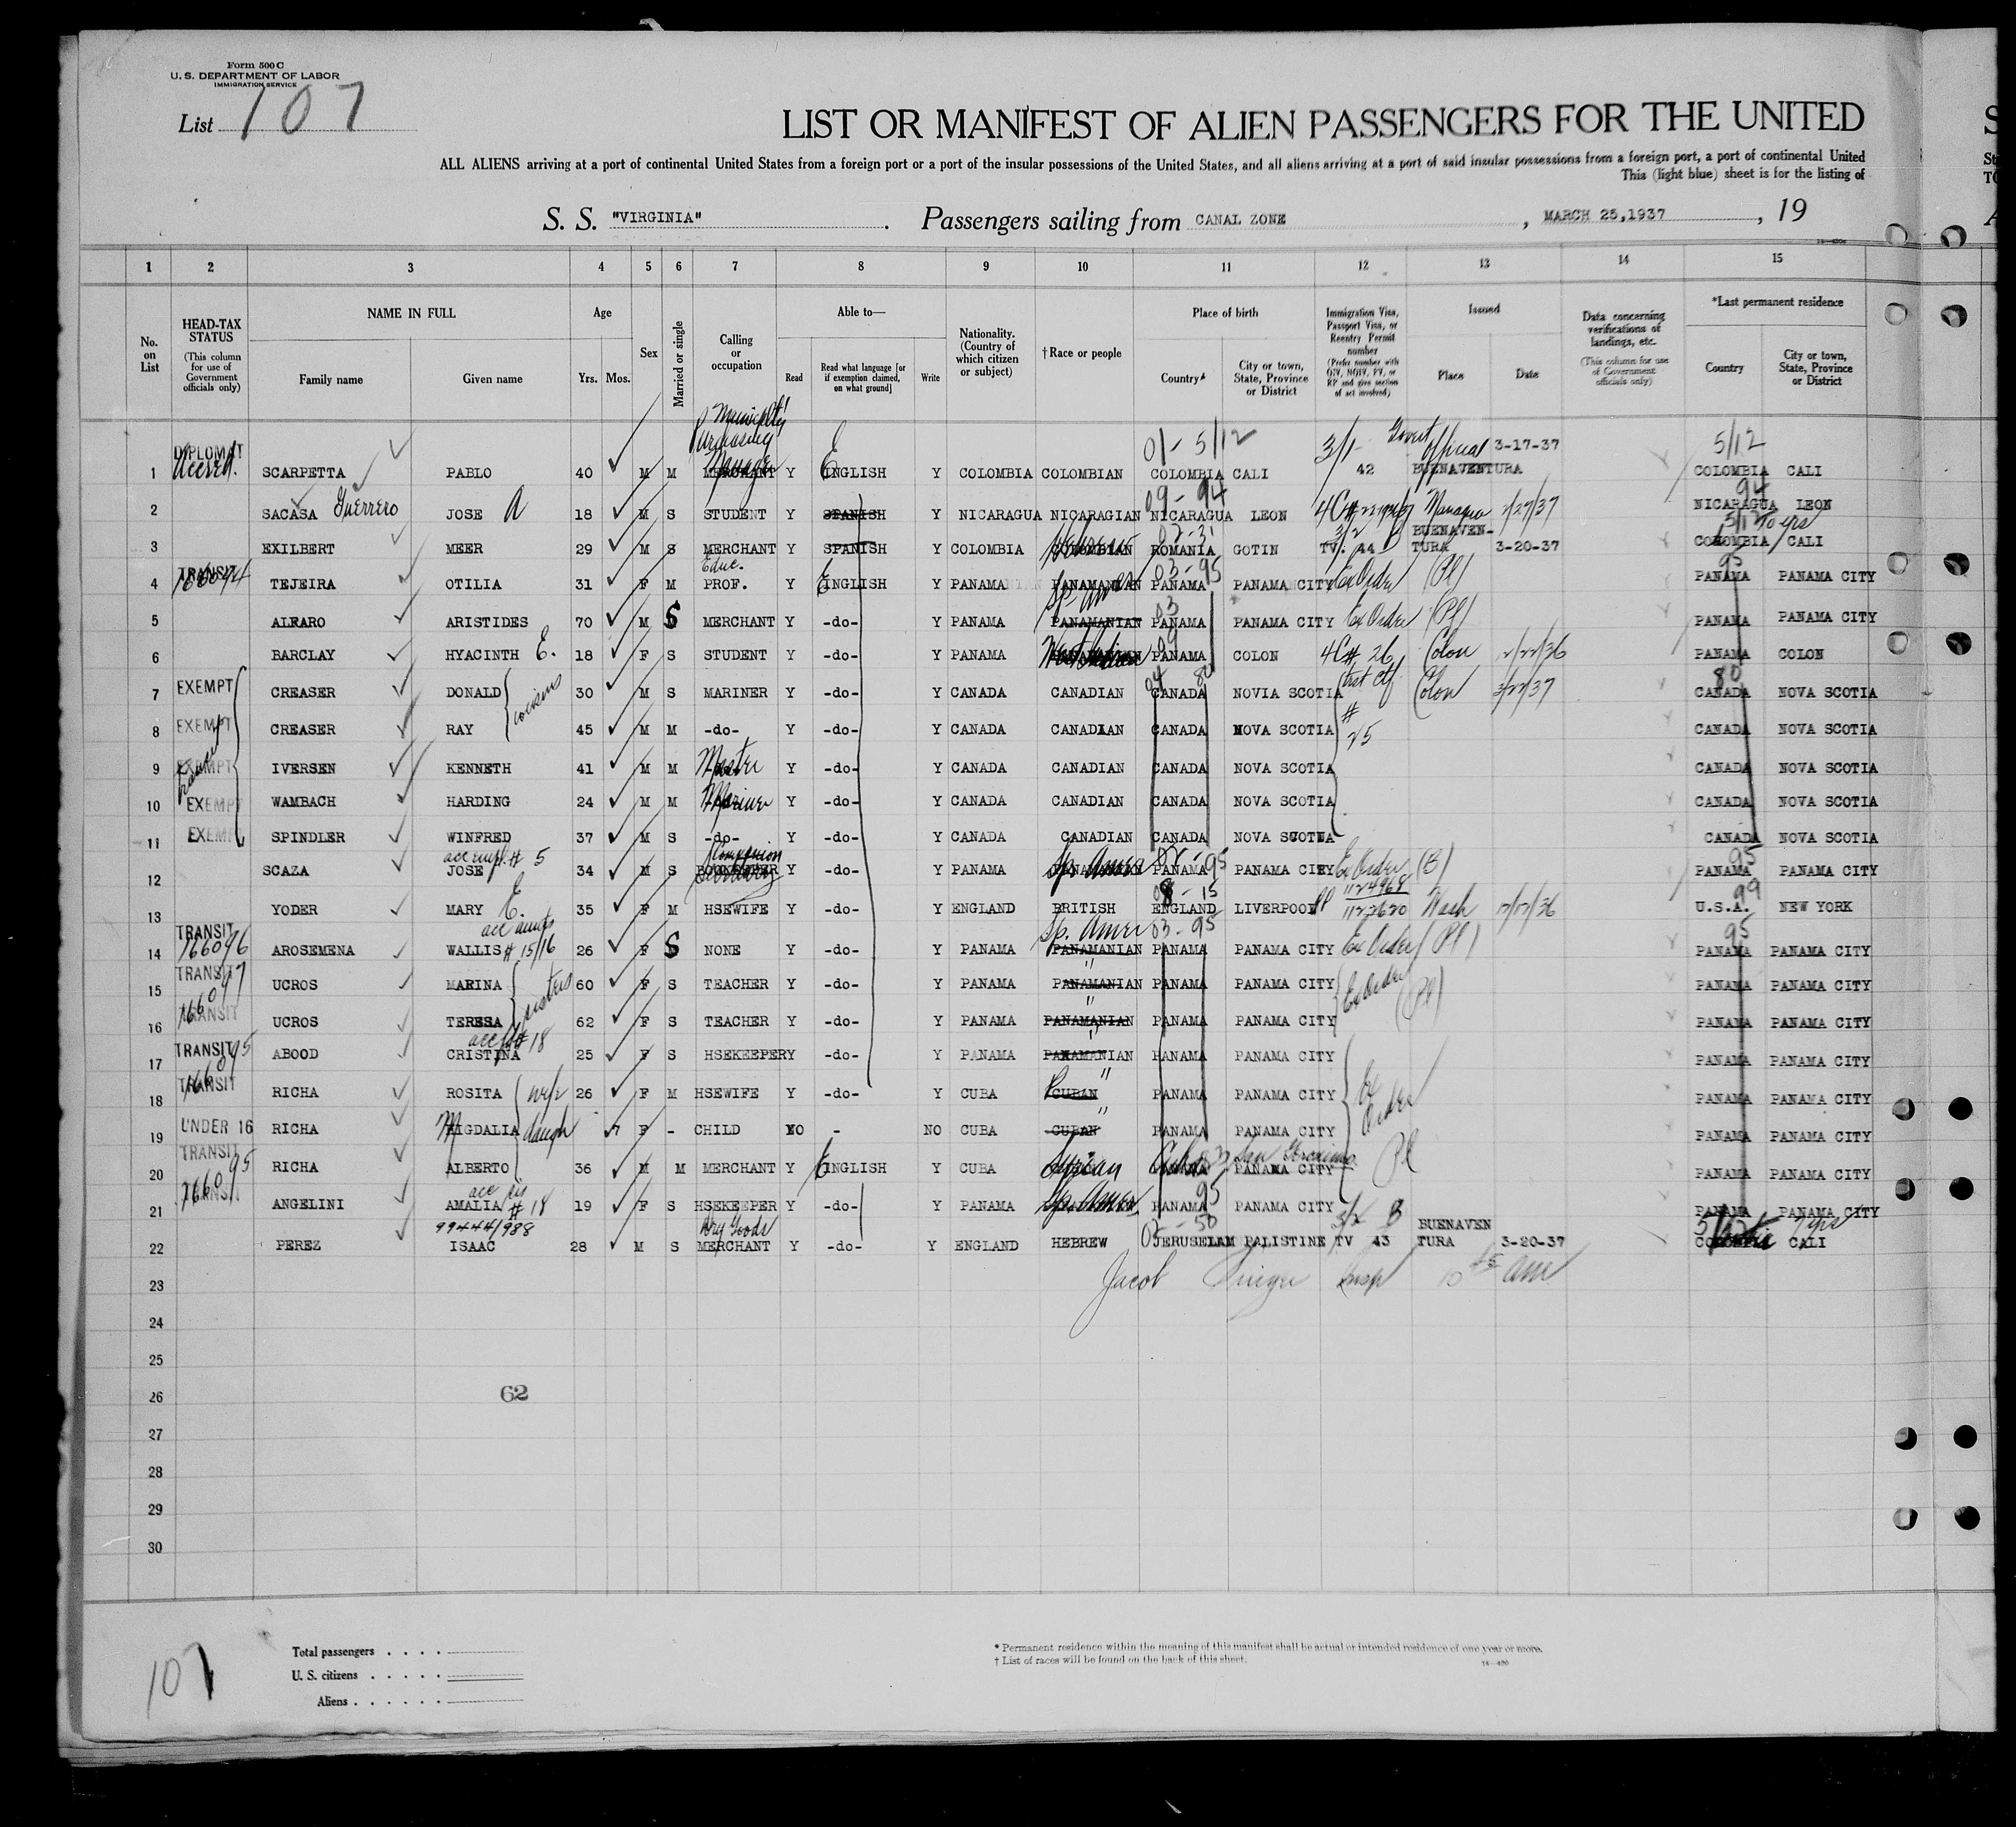 Form 500 C
U. S. DEPARTMENT OF LABOR
IMMIGRATION SERVICE
List 107
LIST OR MANIFEST OF ALIEN PASSENGERS FOR THE UNITED
ALL ALIENS arriving at a port of continental United States from a foreign port or a port of the insular possessions of the United States, and all aliens arriving at a port of said insular possessions from a foreign port, a port of continental United
This (light blue) sheet is for the listing of
S. S. "VIRGINIA" . Passengers sailing from CANAL ZONE , MARCH 25,1937 , 19
1 2 3 4 5 6 7 8 9 10 11 12 13 14 15
No. on List
HEAD-TAX STATUS (This column for use of Government officials only)
NAME IN FULL
Family name Given name
Age
Yrs. Mos.
Sex
Married or single
Calling or occupation
Able to—
Read
Read what language [or if exemption claimed, on what ground]
Write
Nationality. (Country of which citizen or subject)
†Race or people
Place of birth
Country
City or town, State, Province or District
Immigration Visa, Passport Visa, or Reentry Permit number (Prefix number with QIV, NQIV, PV, or RP and give section of act involved)
Issued
Place Date
Data concerning verifications of landings, etc. (This column for use of Government officials only)
*Last permanent residence
Country
City or town, State, Province or District
Purchasing
01 - 5/12 3/1 Govt official 3-17-37 5/12
DIPLOMAT
1 SCARPETTA PABLO 40 M M MERCHANT Manager Y ENGLISH Y COLOMBIA COLOMBIAN COLOMBIA CALI 42 BUENAVENTURA COLOMBIA CALI
09 - 94 94
2 SACASA Guerrero JOSE A 18 M S STUDENT Y SPANISH Y NICARAGUA NICARAGIAN NICARAGUA LEON Managua 2/27/37 NICARAGUA LEON
3/2 B BUENAVEN- 10 yrs
3 EXILBERT MEER 29 M S MERCHANT Y SPANISH Y COLOMBIA Hebrew ROMANIA GOTIN TV. 44 TURA 3-20-37 COLOMBIA CALI
TRANSIT Educ. 03 - 95 95
4 166094 TEJEIRA OTILIA 31 F M PROF. Y ENGLISH Y PANAMA PANAMANIAN PANAMA PANAMA CITY Ex Order (Pl) PANAMA PANAMA CITY
Sp. Amer 03
5 ALFARO ARISTIDES 70 M S MERCHANT Y -do- Y PANAMA PANAMANIAN PANAMA PANAMA CITY Ex Order (Pl) PANAMA PANAMA CITY
6 BARCLAY HYACINTH E. 18 F S STUDENT Y -do- Y PANAMA West Indian PANAMA COLON 4C# 26 Colon 12/22/36 PANAMA COLON
80 80
7 EXEMPT CREASER DONALD cousins 30 M S MARINER Y -do- Y CANADA CANADIAN CANADA NOVIA SCOTIA Colon 3/22/37 CANADA NOVA SCOTIA
8 EXEMPT CREASER RAY 45 M M -do- Y -do- Y CANADA CANADIAN CANADA NOVA SCOTIA # 25 CANADA NOVA SCOTIA
9 EXEMPT IVERSEN KENNETH 41 M M Master Y -do- Y CANADA CANADIAN CANADA NOVA SCOTIA CANADA NOVA SCOTIA
10 EXEMPT WAMBACH HARDING 24 M M Mariner Y -do- Y CANADA CANADIAN CANADA NOVA SCOTIA CANADA NOVA SCOTIA
11 EXEMPT SPINDLER WINFRED 37 M S -do- Y -do- Y CANADA CANADIAN CANADA NOVA SCOTIA CANADA NOVA SCOTIA
acc empl. # 5 Companion 95 95
12 SCAZA JOSE 34 M S BOOKKEEPER Y -do- Y PANAMA Sp. Amer PANAMA PANAMA CITY Ex Order (B) PANAMA PANAMA CITY
8 - 15 1124968 99
13 YODER MARY E. 35 F M HSEWIFE Y -do- Y ENGLAND BRITISH ENGLAND LIVERPOOL 1127620 Wash 12/12/36 U.S.A. NEW YORK
TRANSIT acc aunts Sp. Amer 03 - 95 95
14 166096 AROSEMENA WALLIS # 15/16 26 F S NONE Y -do- Y PANAMA PANAMANIAN PANAMA PANAMA CITY Ex Order (Pl) PANAMA PANAMA CITY
TRANSIT "
15 166097 UCROS MARINA sisters 60 F S TEACHER Y -do- Y PANAMA PANAMANIAN PANAMA PANAMA CITY Ex Order (Pl) PANAMA PANAMA CITY
TRANSIT "
16 UCROS TERESA 62 F S TEACHER Y -do- Y PANAMA PANAMANIAN PANAMA PANAMA CITY PANAMA PANAMA CITY
TRANSIT # 18 "
17 166095 ABOOD CRISTINA 25 F S HSEKEEPER Y -do- Y PANAMA PANAMANIAN PANAMA PANAMA CITY PANAMA PANAMA CITY
TRANSIT "
18 RICHA ROSITA wife 26 F M HSEWIFE Y -do- Y CUBA CUBAN PANAMA PANAMA CITY Ex Order Pl PANAMA PANAMA CITY
"
19 UNDER 16 RICHA MIGDALIA daugh 7 F - CHILD NO - NO CUBA CUBAN PANAMA PANAMA CITY PANAMA PANAMA CITY
TRANSIT
20 166095 RICHA ALBERTO 36 M M MERCHANT Y ENGLISH Y CUBA Syrian Cuba PANAMA CITY PANAMA PANAMA CITY
TRANSIT acc sis 95
21 ANGELINI AMALIA # 18 19 F S HSEKEEPER Y -do- Y PANAMA Sp. Amer. PANAMA PANAMA CITY PANAMA PANAMA CITY
99444/988 Dry Goods 3/2 B BUENAVEN 7 yrs
22 PEREZ ISAAC 28 M S MERCHANT Y -do- Y ENGLAND HEBREW JERUSELAM PALISTINE TV 43 TURA 3-20-37 COLOMBIA CALI
23 Jacob Insp 10 45 am
24
25
26
62
27
28
29
30
107
Total passengers . . . .
U. S. citizens . . . . .
Aliens . . . . . .
* Permanent residence within the meaning of this manifest shall be actual or intended residence of one year or more.
† List of races will be found on the back of this sheet.